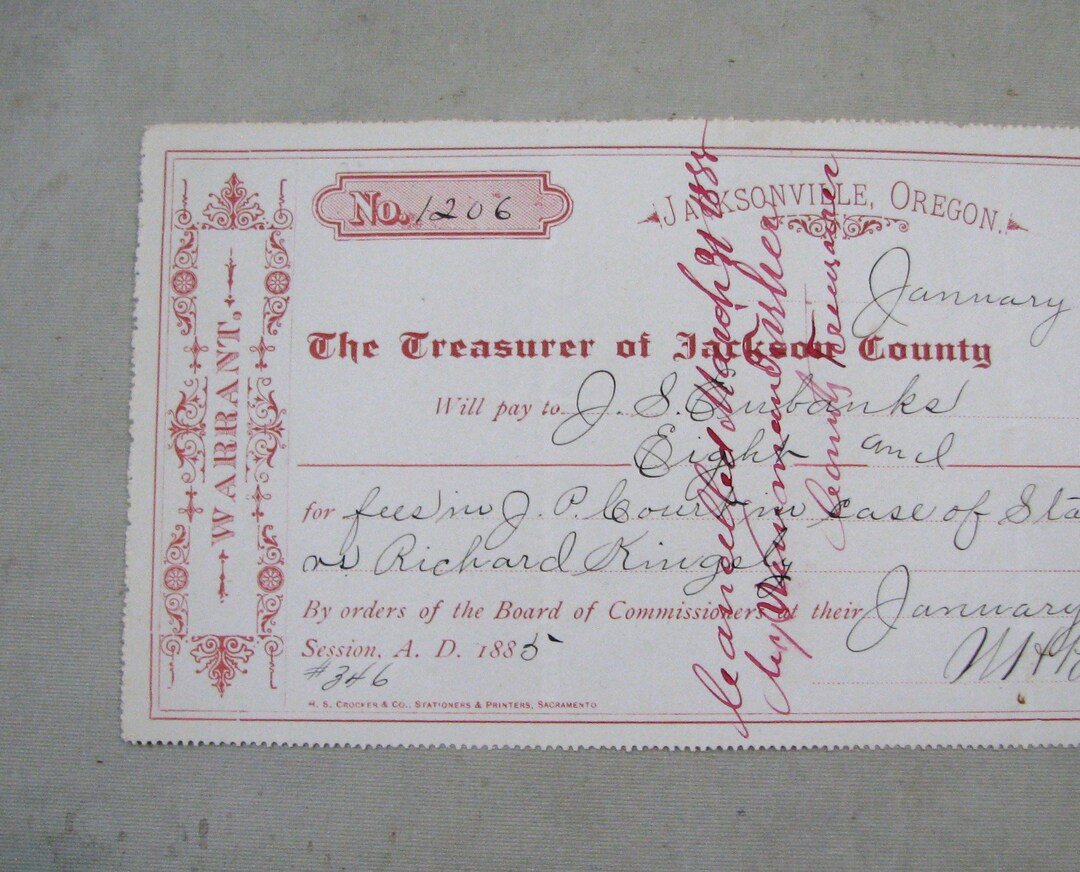 WARRANT,
No. 1206
JACKSONVILLE, OREGON.
January
The Treasurer of Jackson County
Will pay to J. S. Eubanks
Eight and
for fees in J. P. Court in case of Sta
vs Richard Kingsly
By orders of the Board of Commissioners at their January
Session, A. D. 1885
#346
H. S. CROCKER & CO., STATIONERS & PRINTERS, SACRAMENTO
Cancelled March 21 1888
by Newman Fisher
County Treasurer